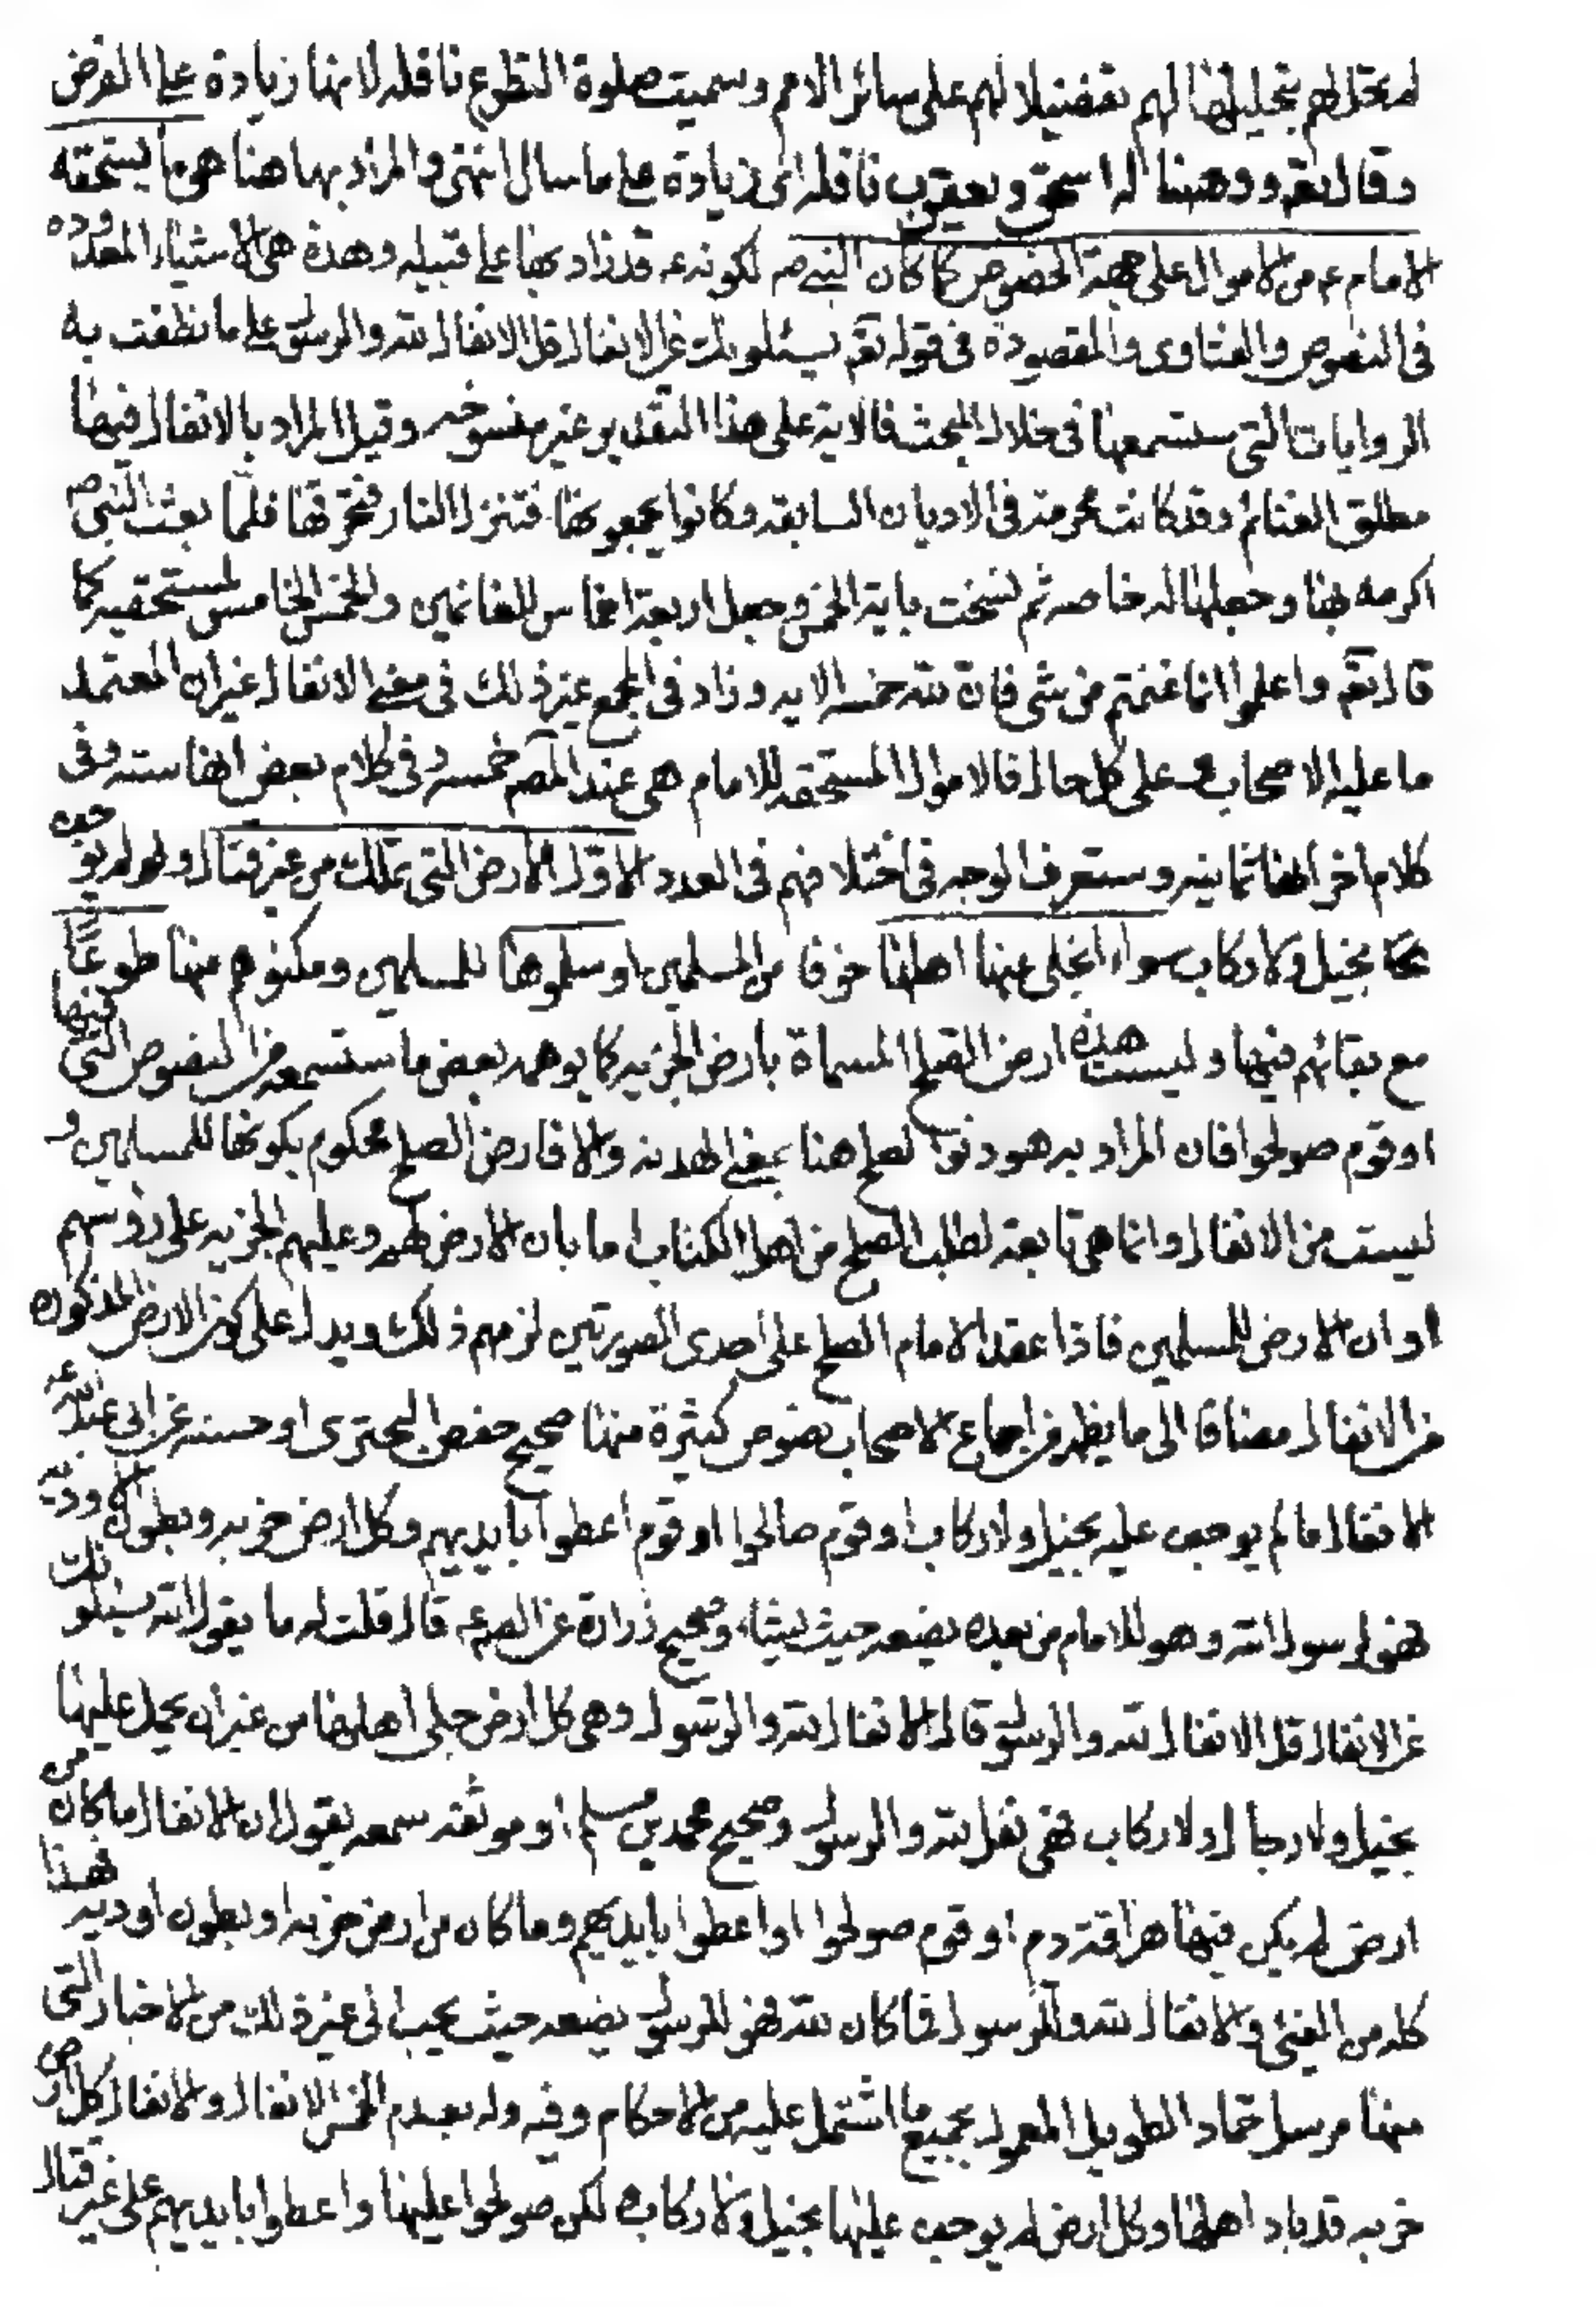 لم تحل لهم بتحليلها لهم تفضيلا لهم على سائر الامم وسميت صلوة التطوع نافلة لانها زيادة على الفرض
وقال تعم ووهبنا له اسحق ويعقوب نافلة اى زيادة على ما سال انتهى والمراد بها هنا هى ما يستحقه
الامام ع من الاموال على جهة الخصوص كما كان النبى ص لكونه ع قد زاد بها على قبيله وهذه هى الاشياء المعدودة
فى النصوص والفتاوى والمقصودة فى قوله تعم يسئلونك عن الانفال قل الانفال لله والرسول على ما نطقت به
الروايات التى ستسمعها فى خلال البحث فالاية على هذا التقدير غير منسوخه وقيل المراد بالانفال فيها
مطلق الغنائم وقد كانت محرمة فى الاديان السابقه وكانوا يجمعونها فتنزل النار فتحرقها فلما بعث النبى ص
اكرمه بها وجعلها له خاصه ثم نسخت باية الخمس وجعل اربعة اخماس للغانمين والخمس الخامس لمستحقيه كما
قال تعم واعلموا انما غنمتم من شى فان لله خمسه الايه وزاد فى المجمع غير ذلك فى معنى الانفال غير ان المعتمد
ما عليه الاصحاب و على كل حال فالاموال المستحقه للامام هى عند المصم خمسه وفى كلام بعض انها سته وفى
كلام اخر انها ثمانيه وستعرف الوجه فى اختلافهم فى العدد الاول الارض التى تملك من غير قتال ولم يوجف
عليها بخيل ولا ركاب سواء انجلى عنها اهلها خوفا من المسلمين او سلموها للمسلمين ومكنوهم منها طوعا
مع بقائهم فيها وليست هذه ارض الصلح المسماة بارض الجزيه كما يوهمه بعض ما ستسمعه من النصوص التى فيها
او قوم صولحوا فان المراد به هو دنو الصلح هنا بمعنى الهدنه والا فارض الصلح محكوم بكونها للمسلمين و
ليست من الانفال وانما هى تابعة لطلب الصلح من اهل الكتاب اما بان الارض لهم وعليهم الجزيه على رؤسهم
او ان الارض للمسلمين فاذا عقد الامام الصلح على احدى الصورتين لزمهم ذلك ويدل على كون الارض المذكوره
من الانفال مضافا الى ما يظهر من اجماع الاصحاب نصوص كثيرة منها صحيح حفص البحترى او حسنه عن ابى عبد الله ع
الانفال ما لم يوجف عليه بخيل ولا ركاب او قوم صالحوا او قوم اعطوا بايديهم وكل ارض خربه وبطون الاوديه
فهو لرسول الله وهو للامام من بعده يضعه حيث يشاء وصحيح زرارة عن الصم ع قال قلت له ما يقول الله يسئلونك
عن الانفال قل الانفال لله والرسول قال الانفال لله والرسول وهى كل ارض جلى اهلها من غير ان يحمل عليها
بخيل ولا رجال ولا ركاب فهى نفل لله والرسول وصحيح محمد بن مسلم او موثقه سمعه يقول ان الانفال ما كان من
ارض لم يكن فيها هراقة دم او قوم صولحوا او اعطوا بايديهم وما كان من ارض خربه او بطون اوديه فهذا
كله من الفىء والانفال لله والرسول فما كان لله فهو للرسول يضعه حيث يحب الى غير ذلك من الاخبار التى
منها مرسل حماد الطويل المعمول بجميع ما اشتمل عليه من الاحكام وفيه وله بعد الخمس الانفال والانفال كل ارض
خربه قد باد اهلها وكل ارض لم يوجف عليها بخيل ولا ركاب لكن صولحوا عليها واعطوا بايديهم على غير قتال